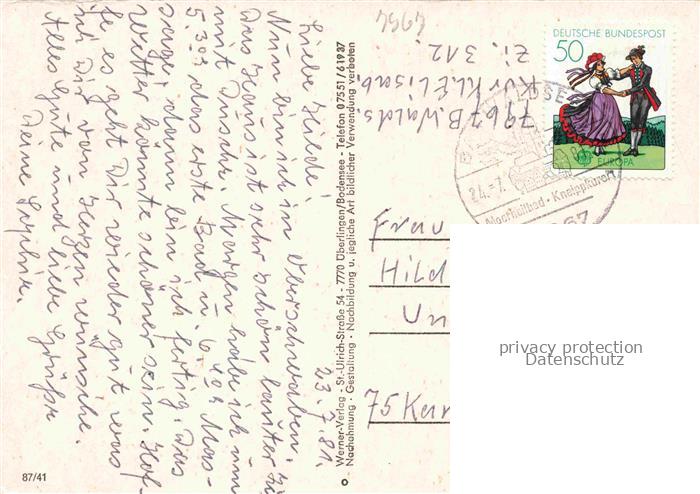 23.7.81.
Liebe Hilde!
Nun bin ich in Oberschwaben.
Das Haus ist sehr schön lauter Zi
mit Dusche. Morgen habe ich um
5.30 das erste Bad u. 6.40 Mas-
sage, dann bin ich fertig. Das
Wetter könnte schöner sein. Hof-
fe es geht Dir wieder gut was
ich Dir von Herzen wünsche.
Alles Gute und liebe Grüße
Deine Sophie.
87/41
Werner-Verlag · St.-Ulrich-Straße 54 · 7770 Überlingen/Bodensee · Telefon 07551/61937
Nachahmung · Gestaltung · Nachbildung u. jegliche Art bildlicher Verwendung verboten
7967 B. Walds
Kurkl. Elisab
Zi. 312.
DEUTSCHE BUNDESPOST
50
EUROPA
24.-7.
Moorheilbad · Kneippkurort
Frau
Hild
Un
75 Kar
privacy protection
Datenschutz